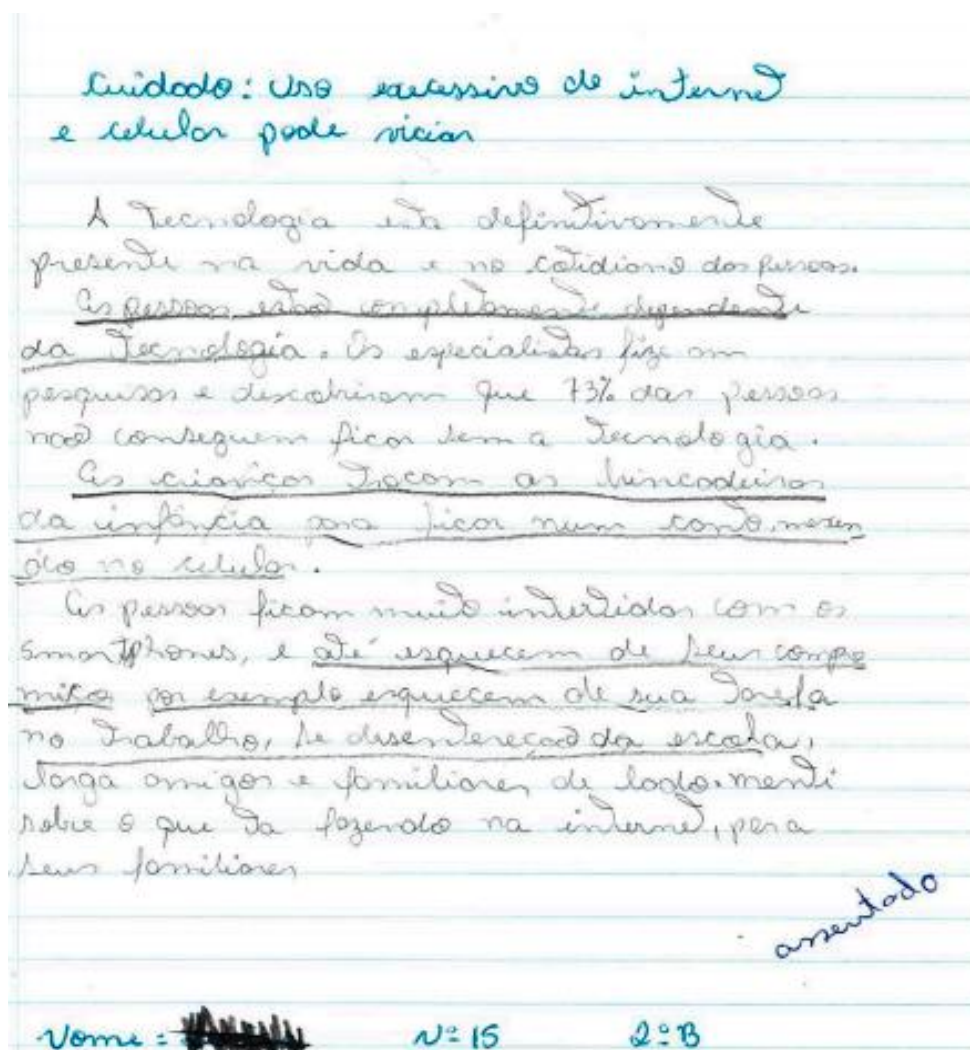 Cuidado: Uso excessivo de internet
e celular pode viciar
A Tecnologia esta definitivamente
presente na vida e no cotidiano das pessoas.
As pessoas estão completamente dependente
da Tecnologia. Os especialistas fize am
pesquisas e descobriram que 73% das pessoas
não conseguem ficar sem a Tecnologia.
As crianças Tocam as brincadeiras
da infância para ficar num canto, mexen
do no celular.
As pessoas ficam muito intertidas com os
smartphones, e até esquecem de seus compo
miços por exemplo esquecem de sua Tarefa
no Trabalho, se desentereção da escola,
larga amigos e familiares de lado. menti
sobre o que Ta fazendo na internet, para
seus familiares
assentado
Nome: Nº 15 2º B